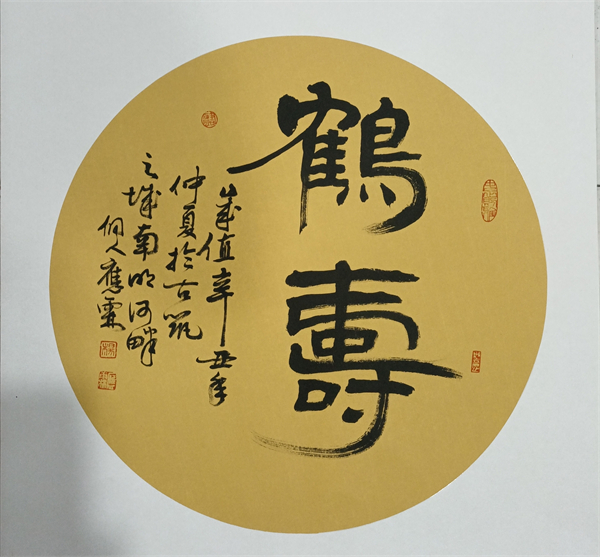 鶴壽
歲值辛丑年
仲夏於古筑
之城南明河畔
侗人應霖